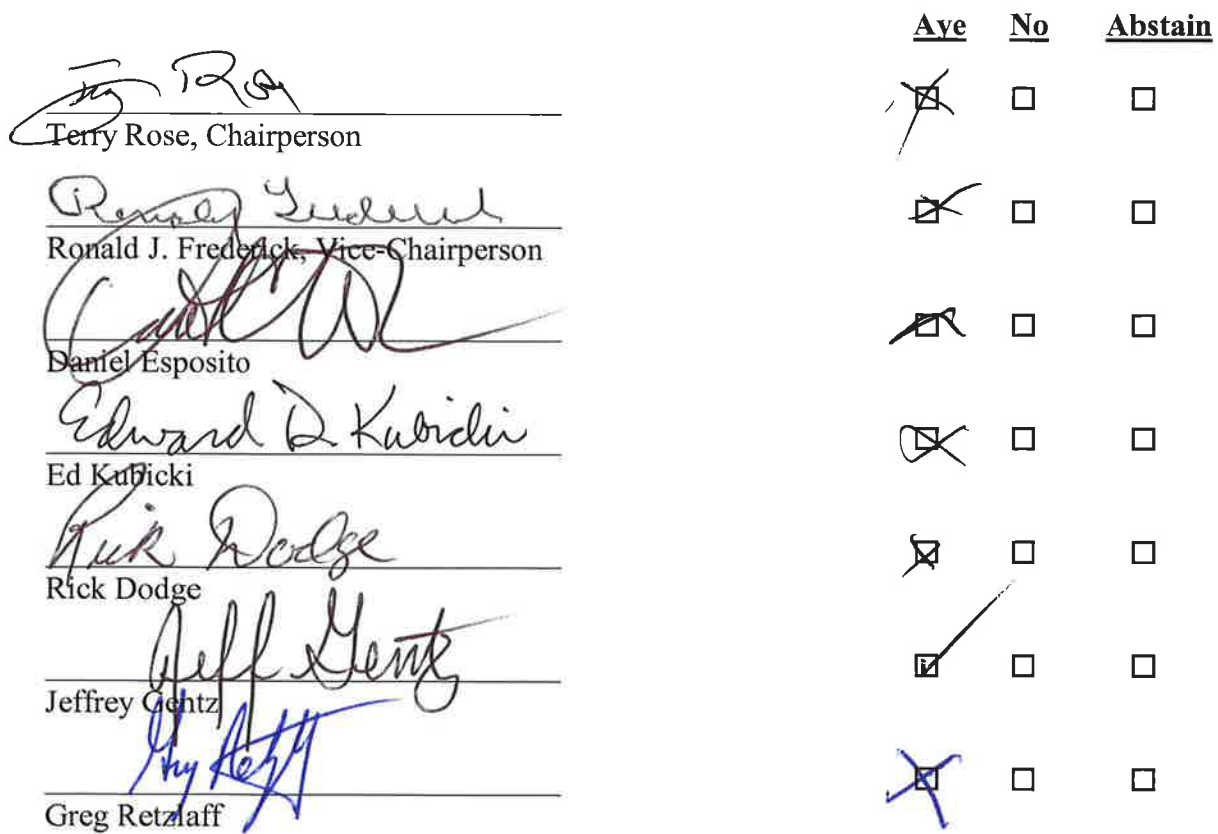 Aye No Abstain
Terry Rose, Chairperson
Ronald J. Frederick, Vice-Chairperson
Daniel Esposito
Edward D. Kubicki
Ed Kubicki
Rick Dodge
Rick Dodge
Jeff Gentz
Jeffrey Gentz
Greg Retzlaff